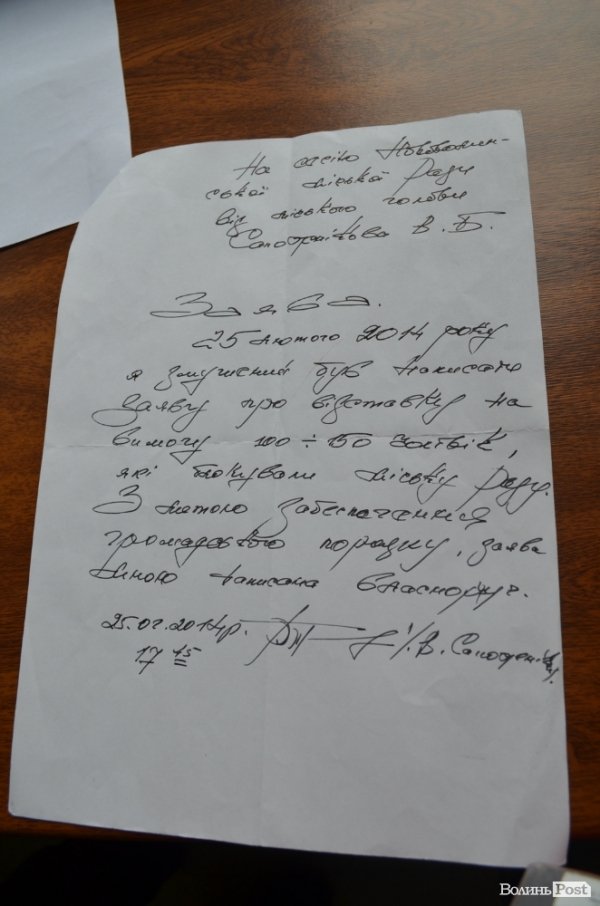 На сесію Нововолин-
ської міської Ради
від міського голови
Сапожнікова В. Б.
Заява.
25 лютого 2014 року
я змушений був написати
заяву про відставку на
вимогу 100 ÷ 150 чоловік,
які блокували міську Раду.
З метою забезпечення
громадського порядку, заява
мною написана власноруч.
25.02.2014р. /В. Сапожніков/.
17 45
ВолиньPost